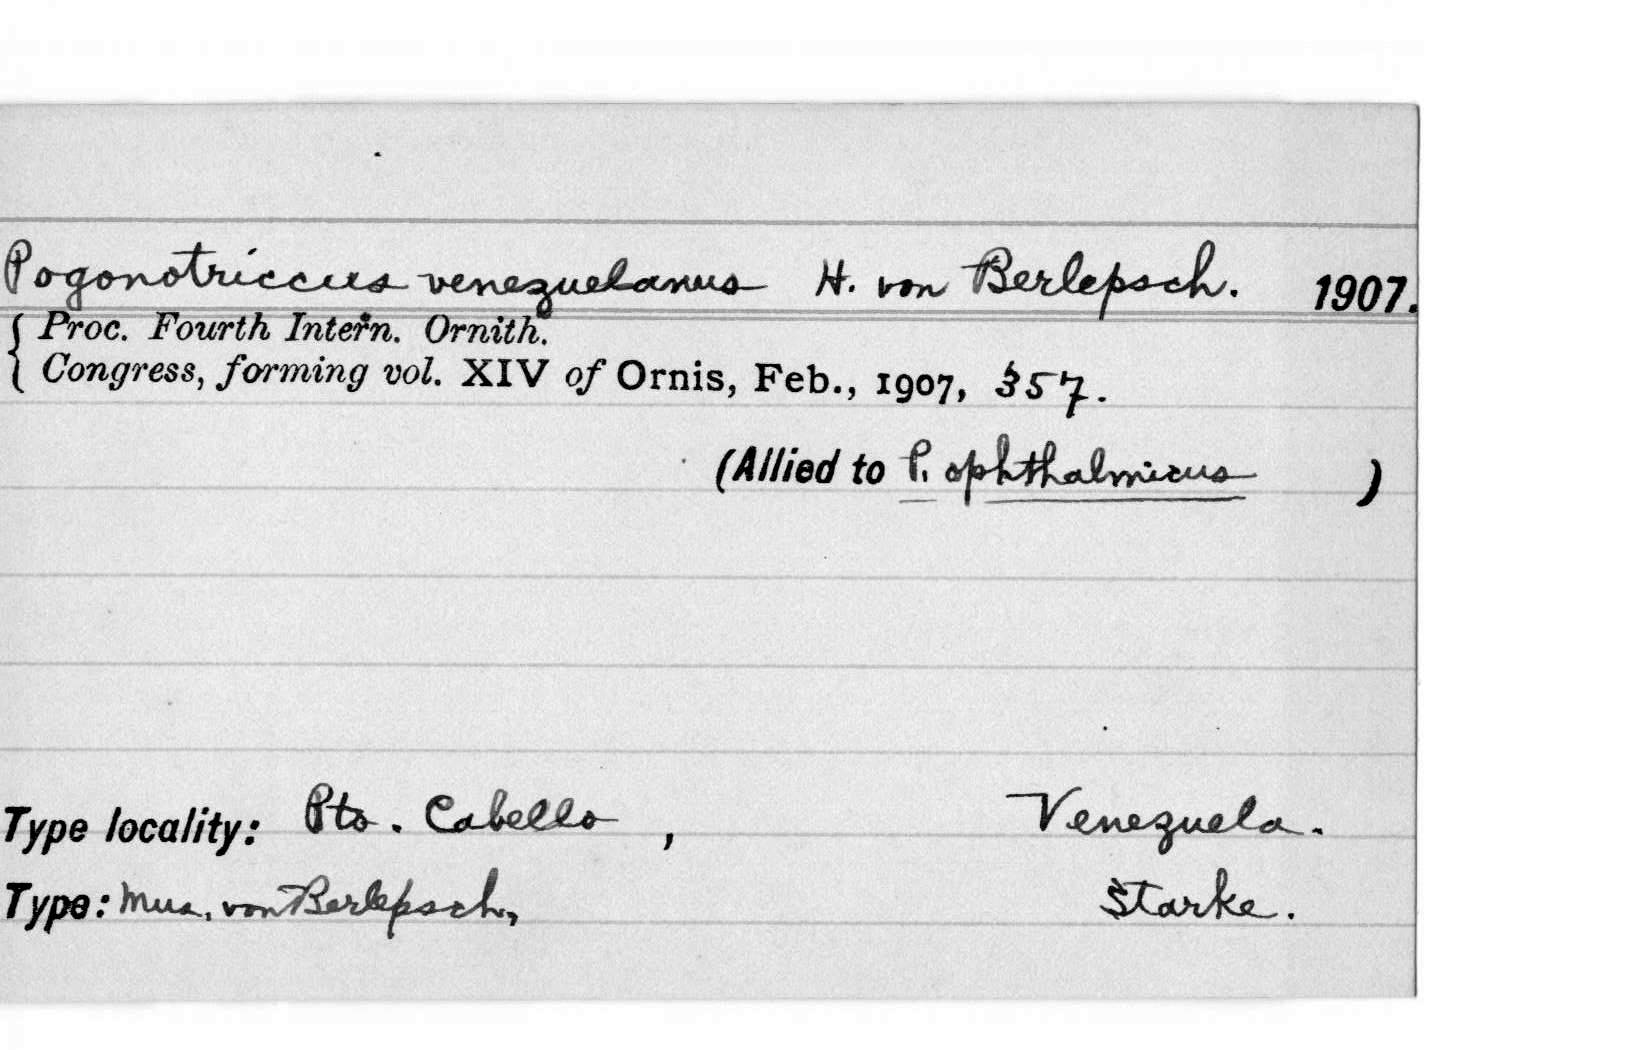 Pogonotriccus venezuelanus H. von Berlepsch. 1907.
{ Proc. Fourth Intern. Ornith.
{ Congress, forming vol. XIV of Ornis, Feb., 1907, 357.
(Allied to P. ophthalmicus )
Type locality: Pto. Cabello , Venezuela.
Type: Mus. von Berlepsch, Starke.